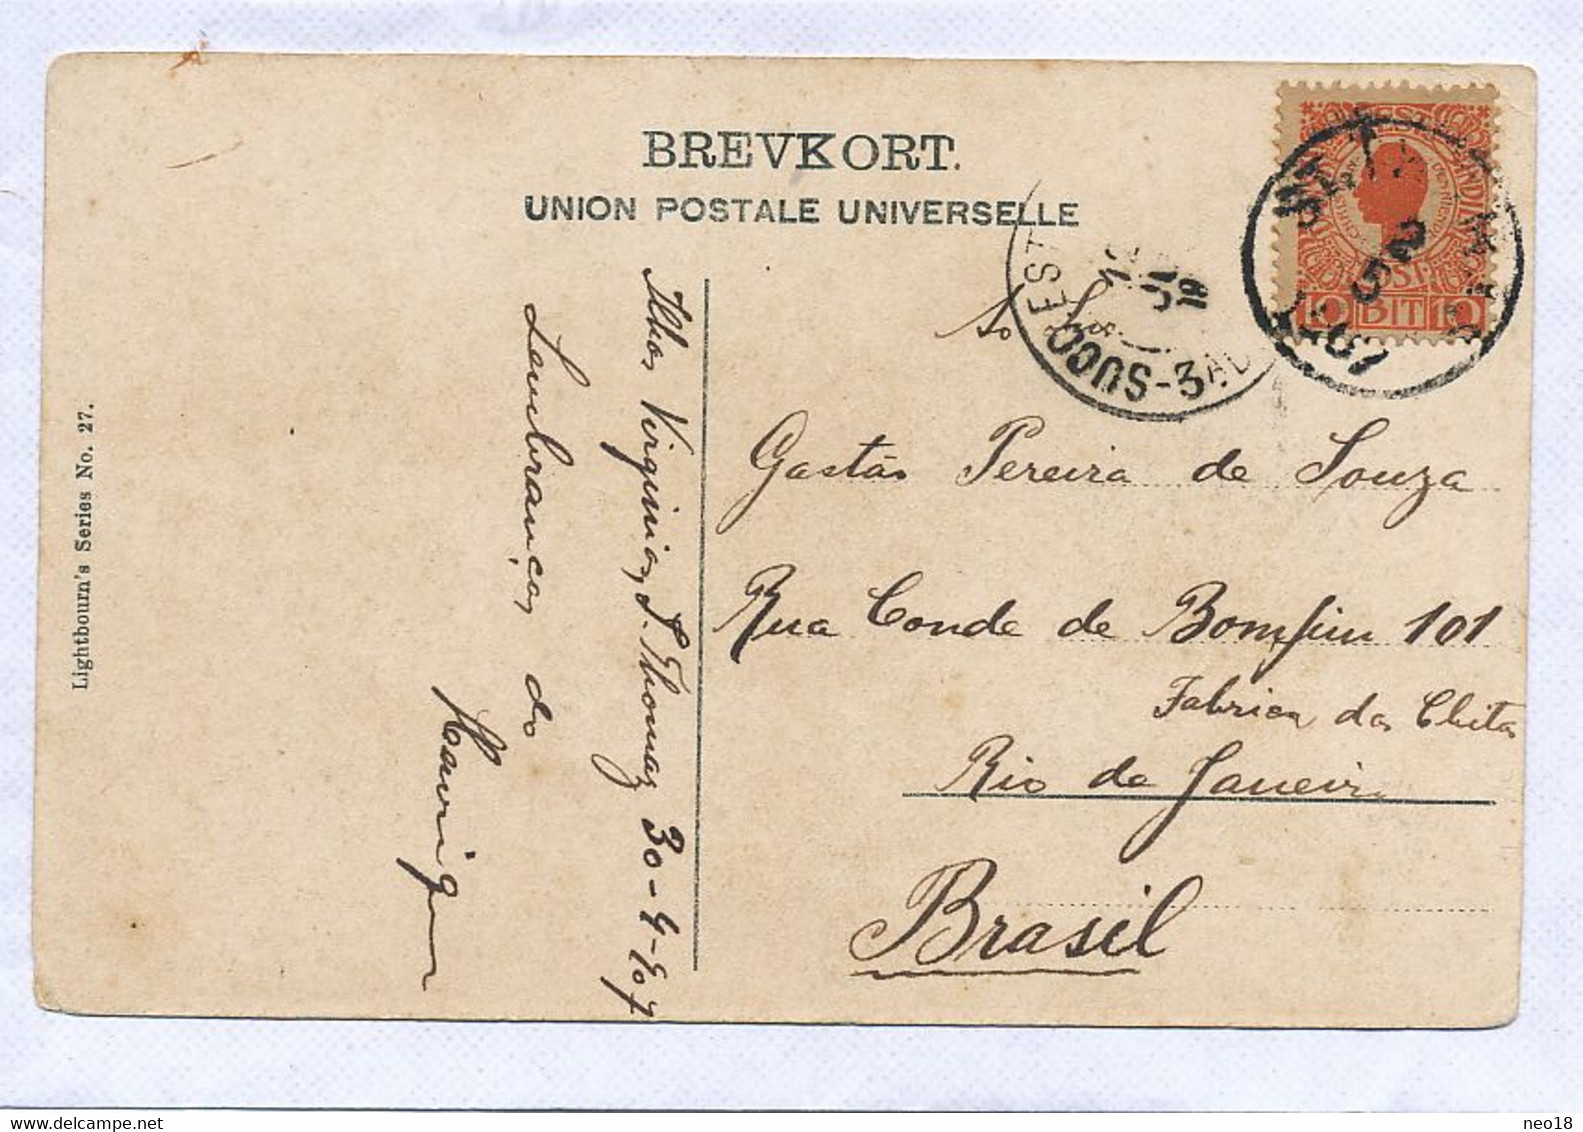 BREVKORT.
UNION POSTALE UNIVERSELLE
Lightbourn's Series No. 27.
Ilhas Virginias, S. Thomaz 30-4-907
Lembranças do
Henrique
Gastão Pereira de Souza
Rua Conde de Bomfim 101
Fabrica das Chitas
Rio de Janeiro
Brasil
10 BIT 10
EST
SUCC-3
delcampe.net
neo18